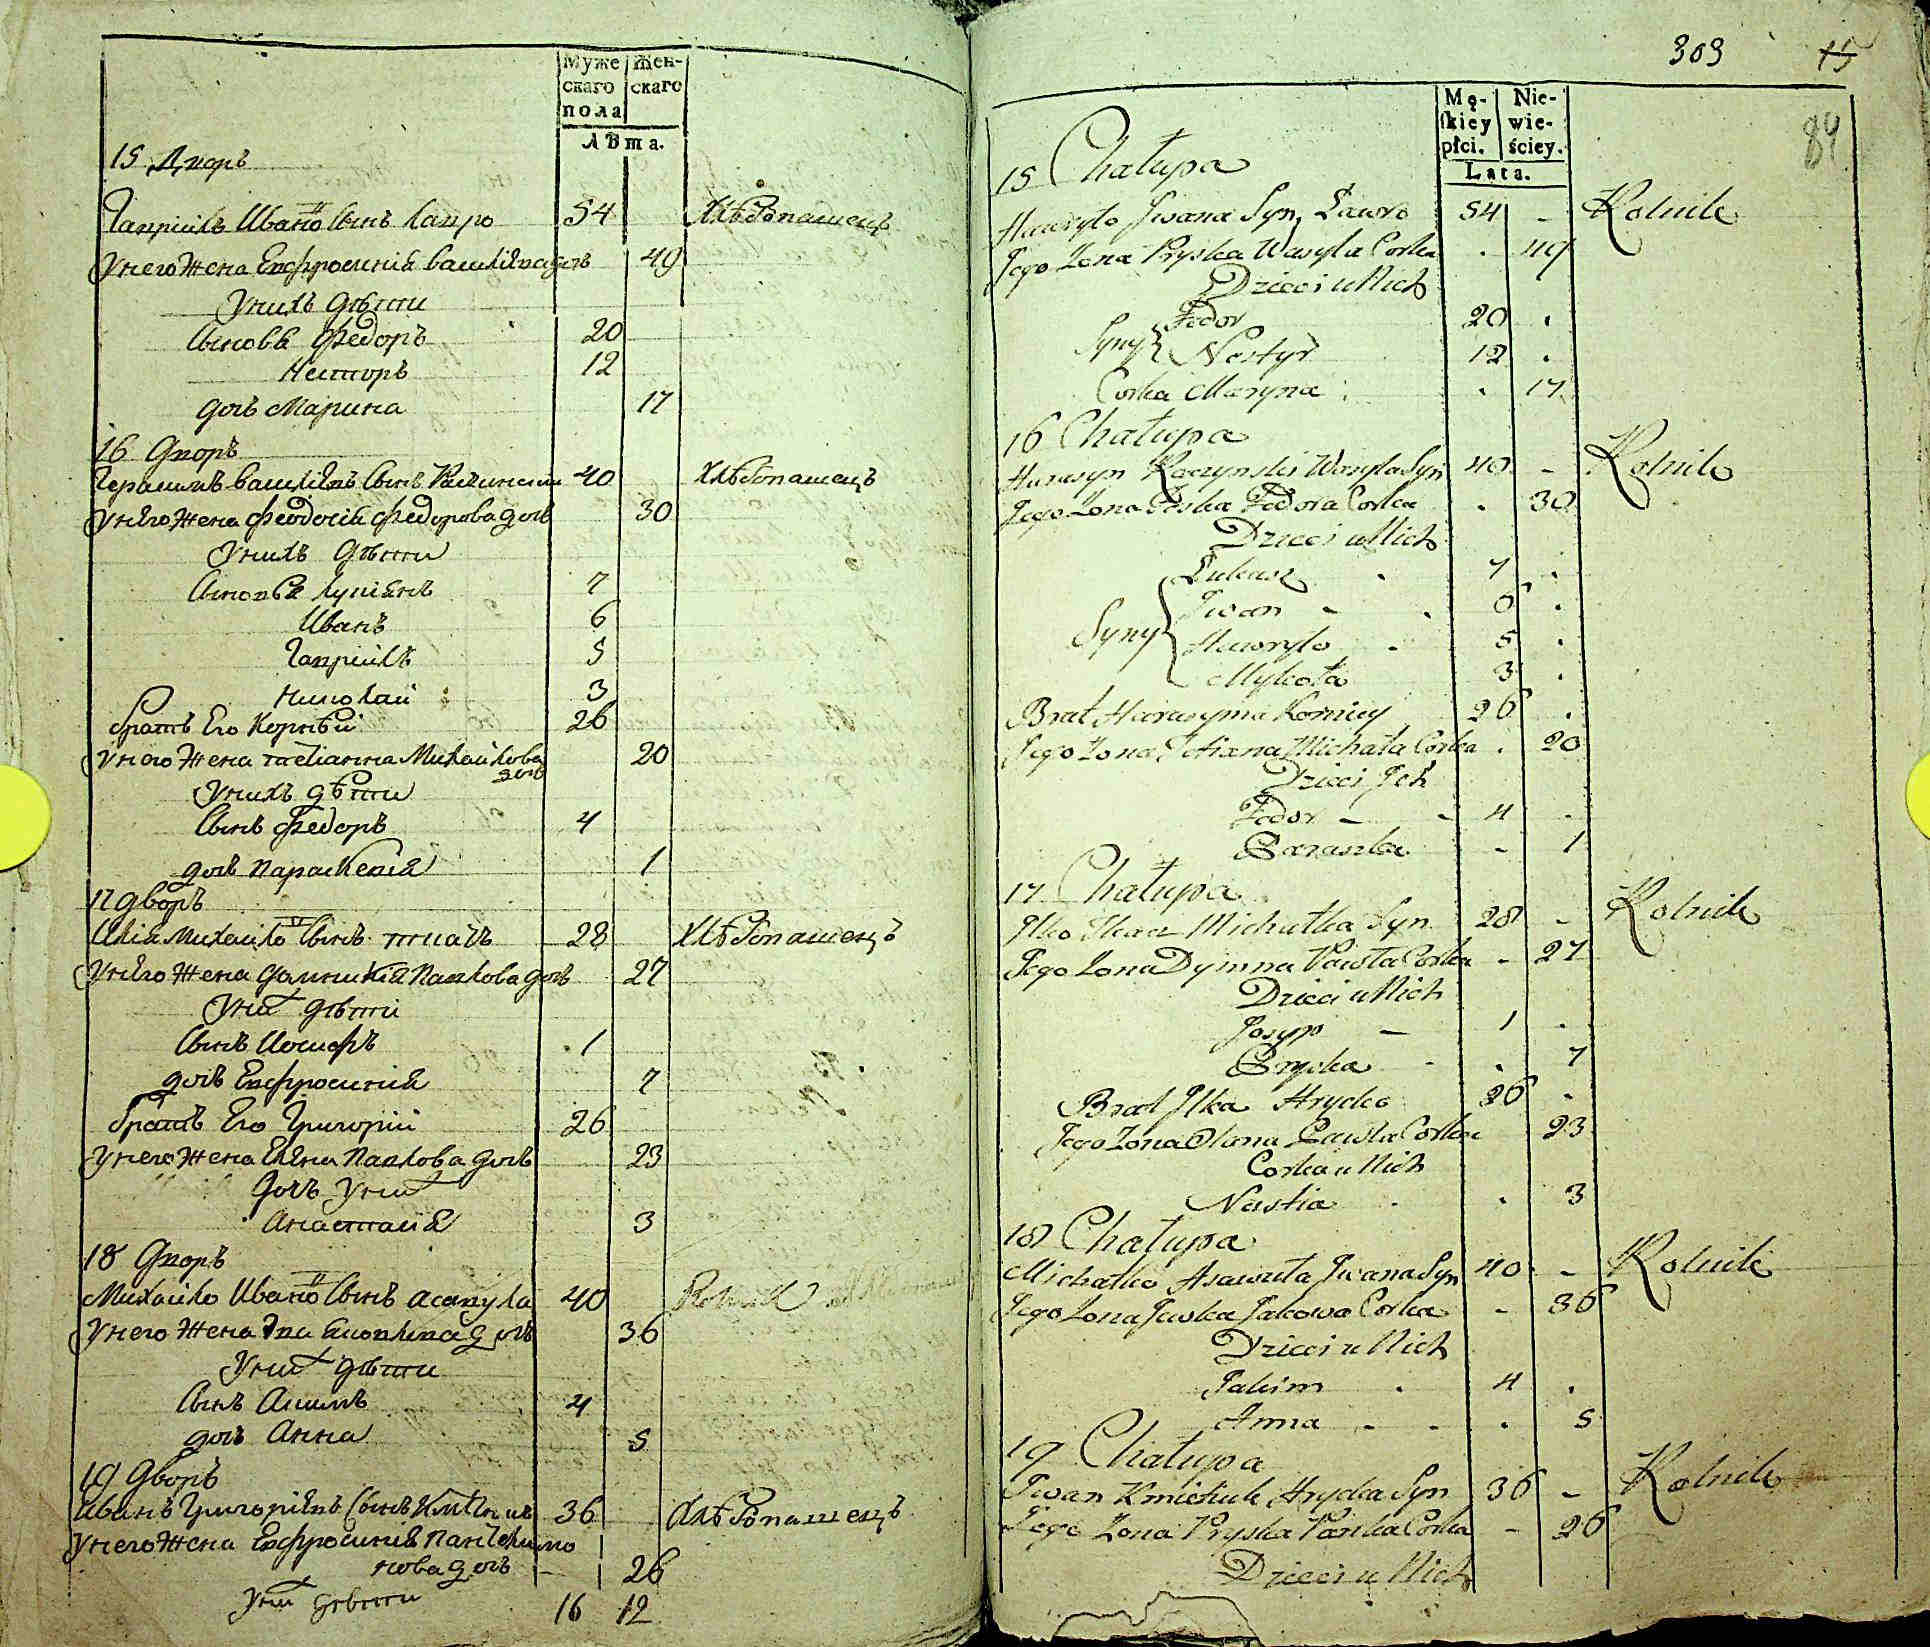 Муже Жен-
скаго скаго
пола
Лѣта.
15 Дворъ
Гавріилъ Ивановъ Сынъ Лавро 54 Хлѣбопашецъ
Унего Жена Евфросинія Василіева дочь 49
Унихъ дѣти
Сыновя Федоръ 20
Несторъ 12
дочь Марина 17
16 Дворъ
Герасимъ Василіевъ Сынъ 40 Хлѣбопашецъ
Унего Жена Феодосія Федорова дочь 30
Унихъ Дѣти
Сыновя Лукіянъ 7
Иванъ 6
Гавріилъ 5
Николай 3
братъ Его Корнѣй 26
Унего Жена Татіанна Михайлова дочь 20
Унихъ дѣти
Сынъ Федоръ 4
дочь Параскевія 1
17 дворъ
Илія Михайло Сынъ ткачъ 28 Хлѣбопашецъ
Унего Жена Домникія Павлова дочь 27
Уних дѣти
Сынъ Иосифъ 1
дочь Евфросинія 7
братъ Его Григорій 26
Унего Жена Елена Павлова дочь 23
дочь Уних
Анастасія 3
18 Дворъ
Михайло Ивано Сынъ Асавула 40 Rolnik
Унего Жена Эва Яковлева дочь 36
Уних дѣти
Сынъ Акимъ 4
дочь Анна 5
19 Дворъ
Иванъ Григоріевъ Сынъ 36 Хлѣбопашецъ
Унего Жена Евфросинія Пантелимо
нова дочь 26
Уних дѣти 16 12
303 15
84
Mę- Nie-
skiey wie-
płci. ściey.
Lata.
15 Chałupa
Hawryło Jwana Syn Ławro 54 - Rolnik
Jego Zona Pryska Wasyla Corka . 49
Dzieci u Nich
Syny { Fedor 20 .
Nestyr 12 .
Corka Maryna . 17
16 Chałupa
Harasyn Raczynski Wasyla Syn 40 - Rolnik
Jego Zona Teska Fedora Corka . 30
Dzieci u Nich
Syny { Łukasz 7 .
Jwan - 6 .
Hawryło 5 .
Mykoła 3 .
Brat Harasyma Korniey 26 .
Jego Zona Tetianna Michała Corka . 20
Dzieci Jch
Fedor - 4 .
Paraska - 1
17 Chałupa
Jlko Tkacz Michałka Syn 28 - Rolnik
Jego Zona Dymna Pawła Corka - 27
Dzieci u Nich
Josyp - 1 .
Pryska . 7
Brat Jlka Hrycko 26 .
Jego Zona Olana Pawła Corka 23
Corka u Nich
Nastia . 3
18 Chałupa
Michałko Asawuła Jwana Syn 40 - Rolnik
Jego Zona Jewka Jakowa Corka - 36
Dzieci u Nich
Jakim 4 .
Anna - - . 5
19 Chałupa
Jwan Kmiciuk Hrycka Syn 36 - Rolnik
Jego Zona Pryska Pańka Corka - 26
Dzieci u Nich